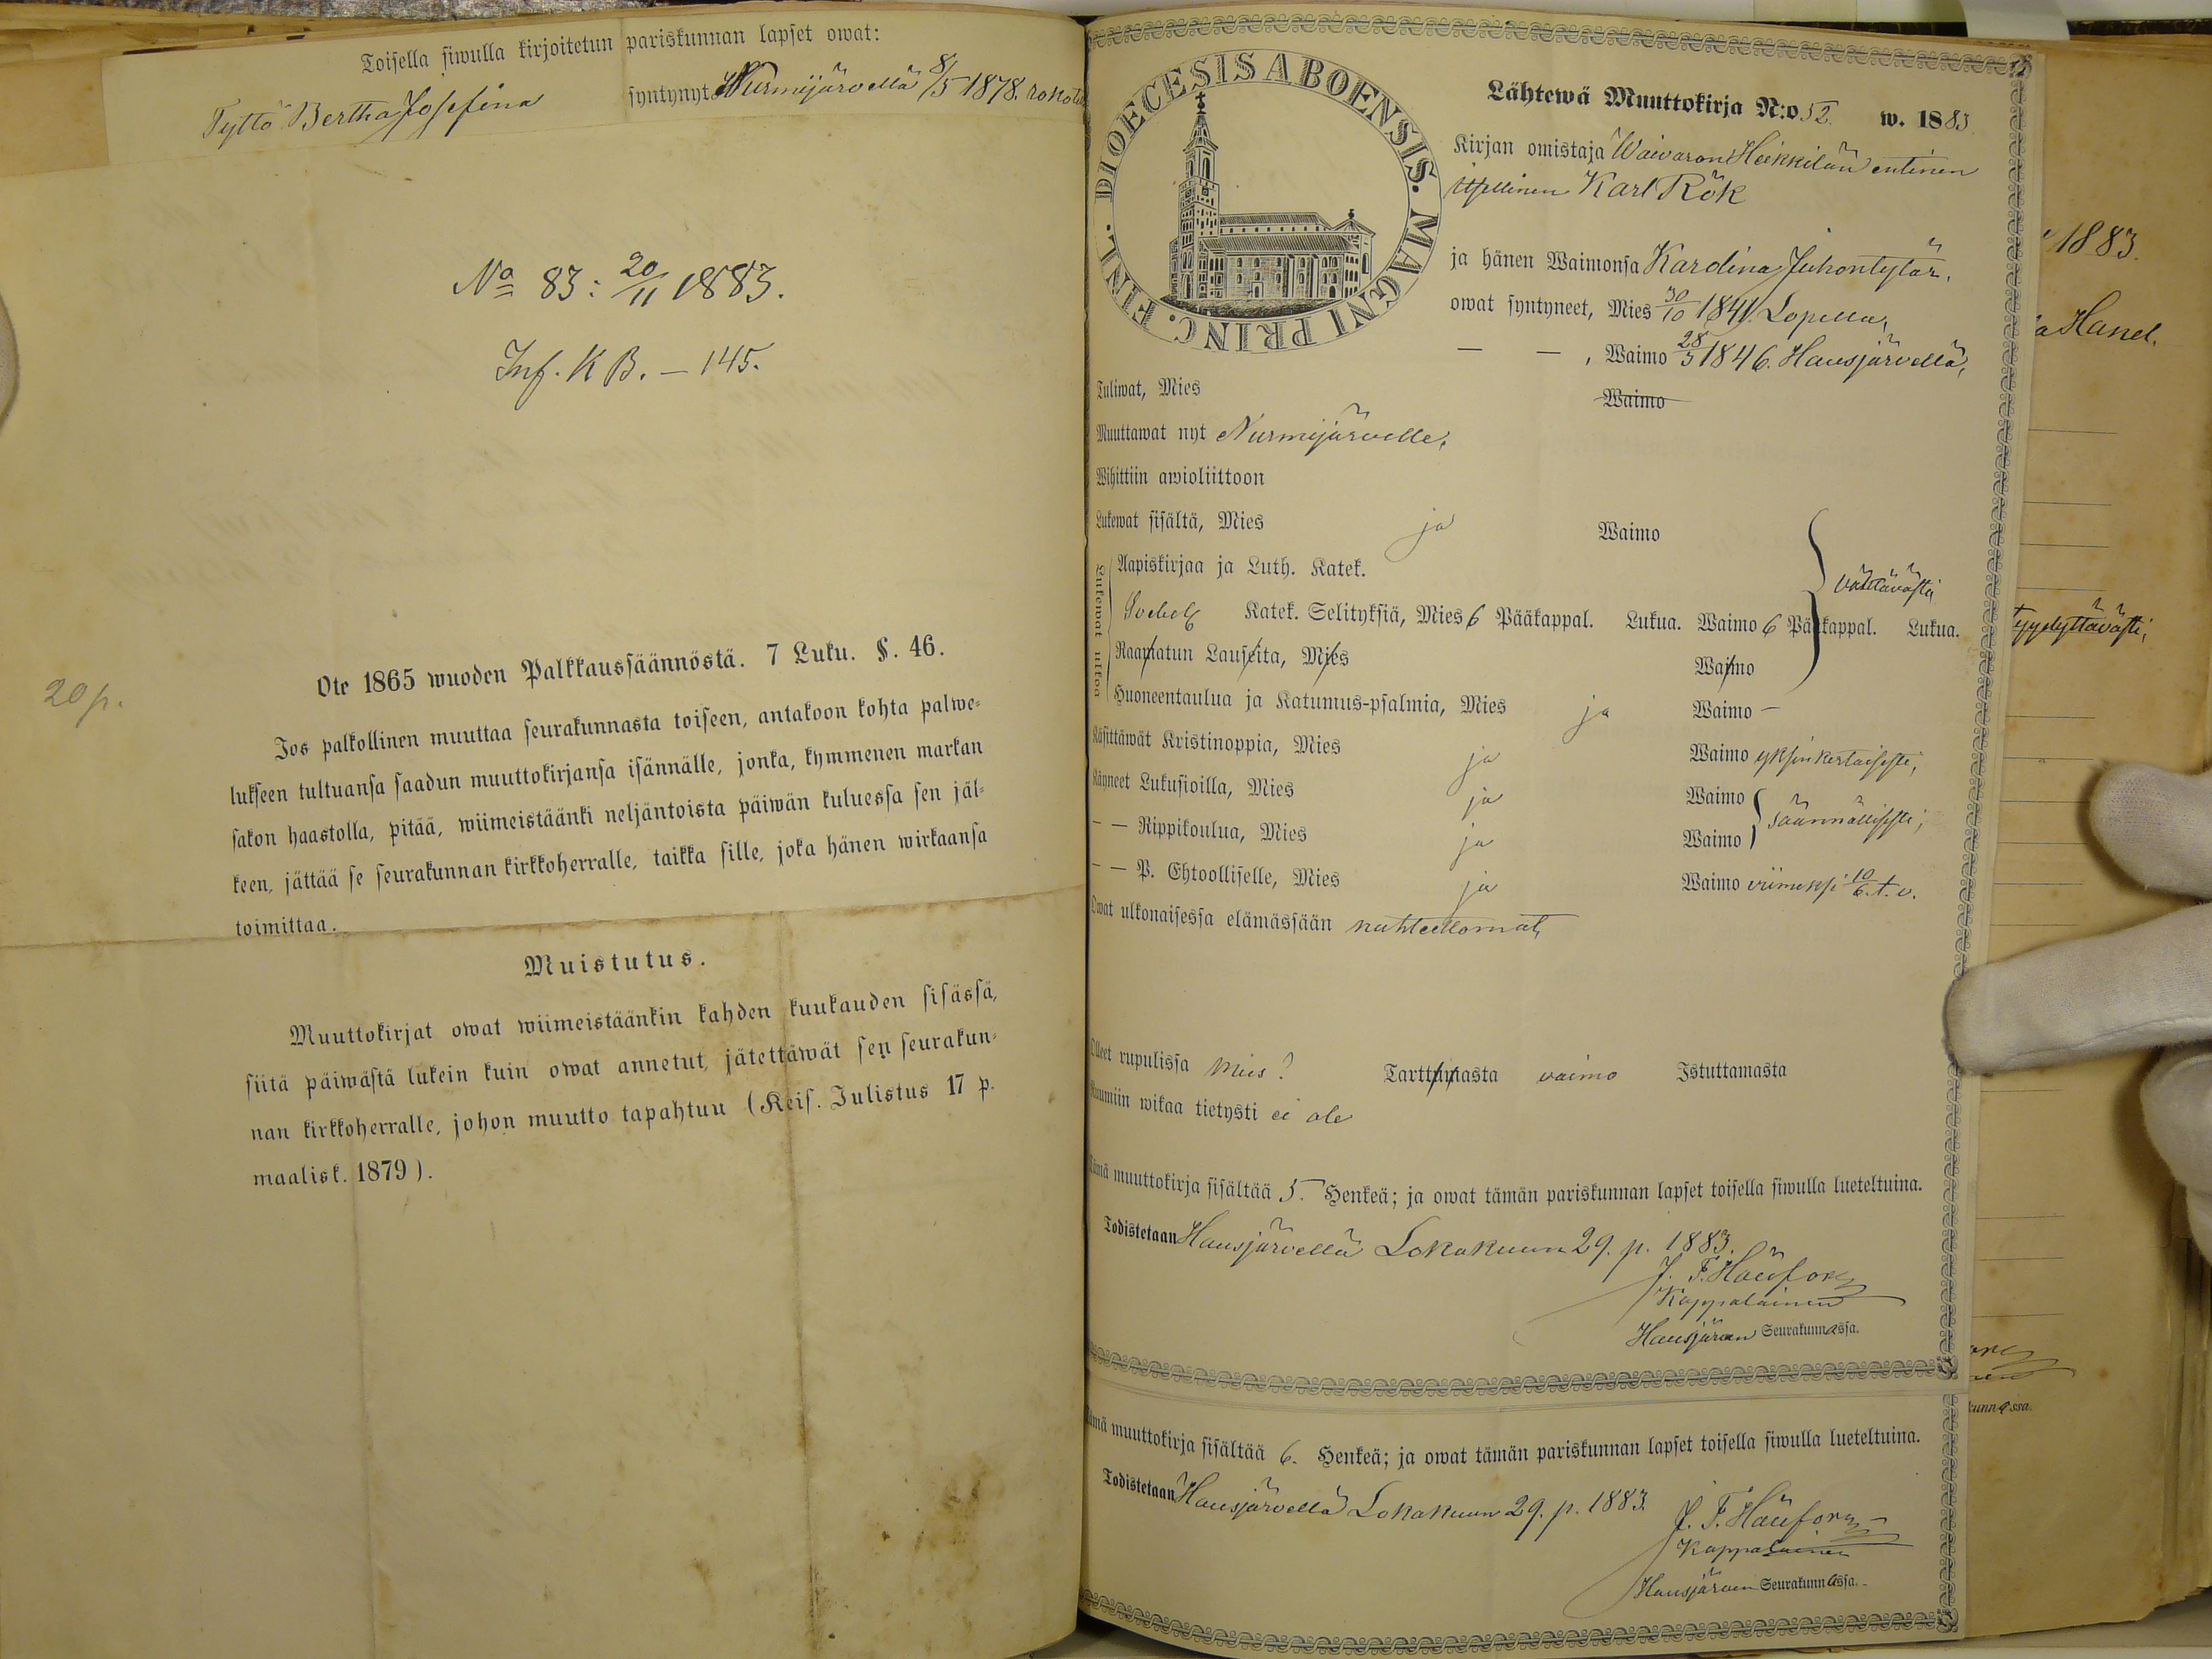 Toisella siwulla kirjoitetun pariskunnan lapset owat:
Tyttö Bertha Josefina syntynyt Nurmijärvellä 8/5 1878. rokot
No 83: 20/11 1883.
Inf. K B. – 145.
20 p.
Ote 1865 wuoden Palkkaussäännöstä. 7 Luku. §. 46.
Jos palkollinen muuttaa seurakunnasta toiseen, antakoon kohta palwe-
lukseen tultuansa saadun muuttokirjansa isännälle, jonka, kymmenen markan
sakon haastolla, pitää, wiimeistäänki neljäntoista päiwän kuluessa sen jäl-
keen, jättää se seurakunnan kirkkoherralle, taikka sille, joka hänen wirkaansa
toimittaa.
Muistutus.
Muuttokirjat owat wiimeistäänkin kahden kuukauden sisässä,
siitä päiwästä lukein kuin owat annetut, jätettäwät sen seurakun-
nan kirkkoherralle, johon muutto tapahtuu (Keis. Julistus 17 p.
maalisk. 1879).
DIOECESIS ABOENSIS. MAGNI PRINC. FINL.
Lähtewä Muuttokirja N:o 52. w. 1883.
Kirjan omistaja Waivaron Heikkilän entinen
itsellinen Karl Rök
ja hänen Waimonsa Karolina Juhontytär,
owat syntyneet, Mies 30/10 1841. Lopella,
— — , Waimo 28/3 1846. Hausjärvellä,
Tuliwat, Mies Waimo
Muuttawat nyt Nurmijärvelle,
Wihittiin awioliittoon
Lukewat sisältä, Mies ja Waimo
Lukewat ulkoa
Aapiskirjaa ja Luth. Katek. välttävästi
Katek. Selityksiä, Mies 6 Pääkappal. Lukua. Waimo 6 Pääkappal. Lukua.
Raamatun Lauseita, Mies Waimo
Huoneentaulua ja Katumus-psalmia, Mies ja Waimo –
Käsittäwät Kristinoppia, Mies ja Waimo yksinkertaisesti,
Käyneet Lukusioilla, Mies ja Waimo säännöllisesti,
— — Rippikoulua, Mies ja Waimo
— — P. Ehtoolliselle, Mies ja Waimo viimeksi 10/6 t. v.
Owat ulkonaisessa elämässään nuhteettomat,
Olleet rupulissa Mies? Tarttumasta vaimo Istuttamasta
Ruumiin wikaa tietysti ei ole
Tämä muuttokirja sisältää 5. Henkeä; ja owat tämän pariskunnan lapset toisella siwulla lueteltuina.
Todistetaan Hausjärvellä Lokakuun 29. p. 1883.
Kappalainen
Hausjärven Seurakunnassa.
Tämä muuttokirja sisältää 6. Henkeä; ja owat tämän pariskunnan lapset toisella siwulla lueteltuina.
Todistetaan Hausjärvellä Lokakuun 29. p. 1883.
Kappalainen
Hausjärven Seurakunnassa.
1883.
Hanel.
tyydyttävästi,
kunnassa.